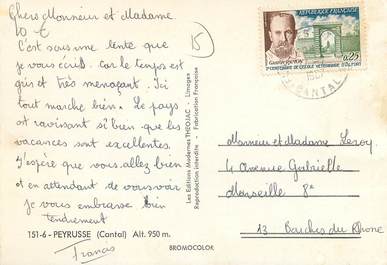 Chers Monsieur et Madame
10 €
15
C'est sous une tente que
je vous écris car le temps est
gris et très menaçant. Ici
tout marche bien. Le pays
est ravissant si bien que les
vacances sont excellentes.
J'espère que vous allez bien
et en attendant de vous voir
je vous embrasse bien
tendrement
151-6 - PEYRUSSE (Cantal) Alt. 950 m.
Francis
BROMOCOLOR
Les Editions Modernes THEOJAC - Limoges
Reproduction interdite - Fabrication Française
REPUBLIQUE FRANCAISE
GASTON RAMON
0,25
2e CENTENAIRE DE L'ECOLE VETERINAIRE D'ALFORT
CANTAL
Monsieur et Madame Leroy
4 avenue Gabrielle
Marseille 8e
13 Bouches du Rhône